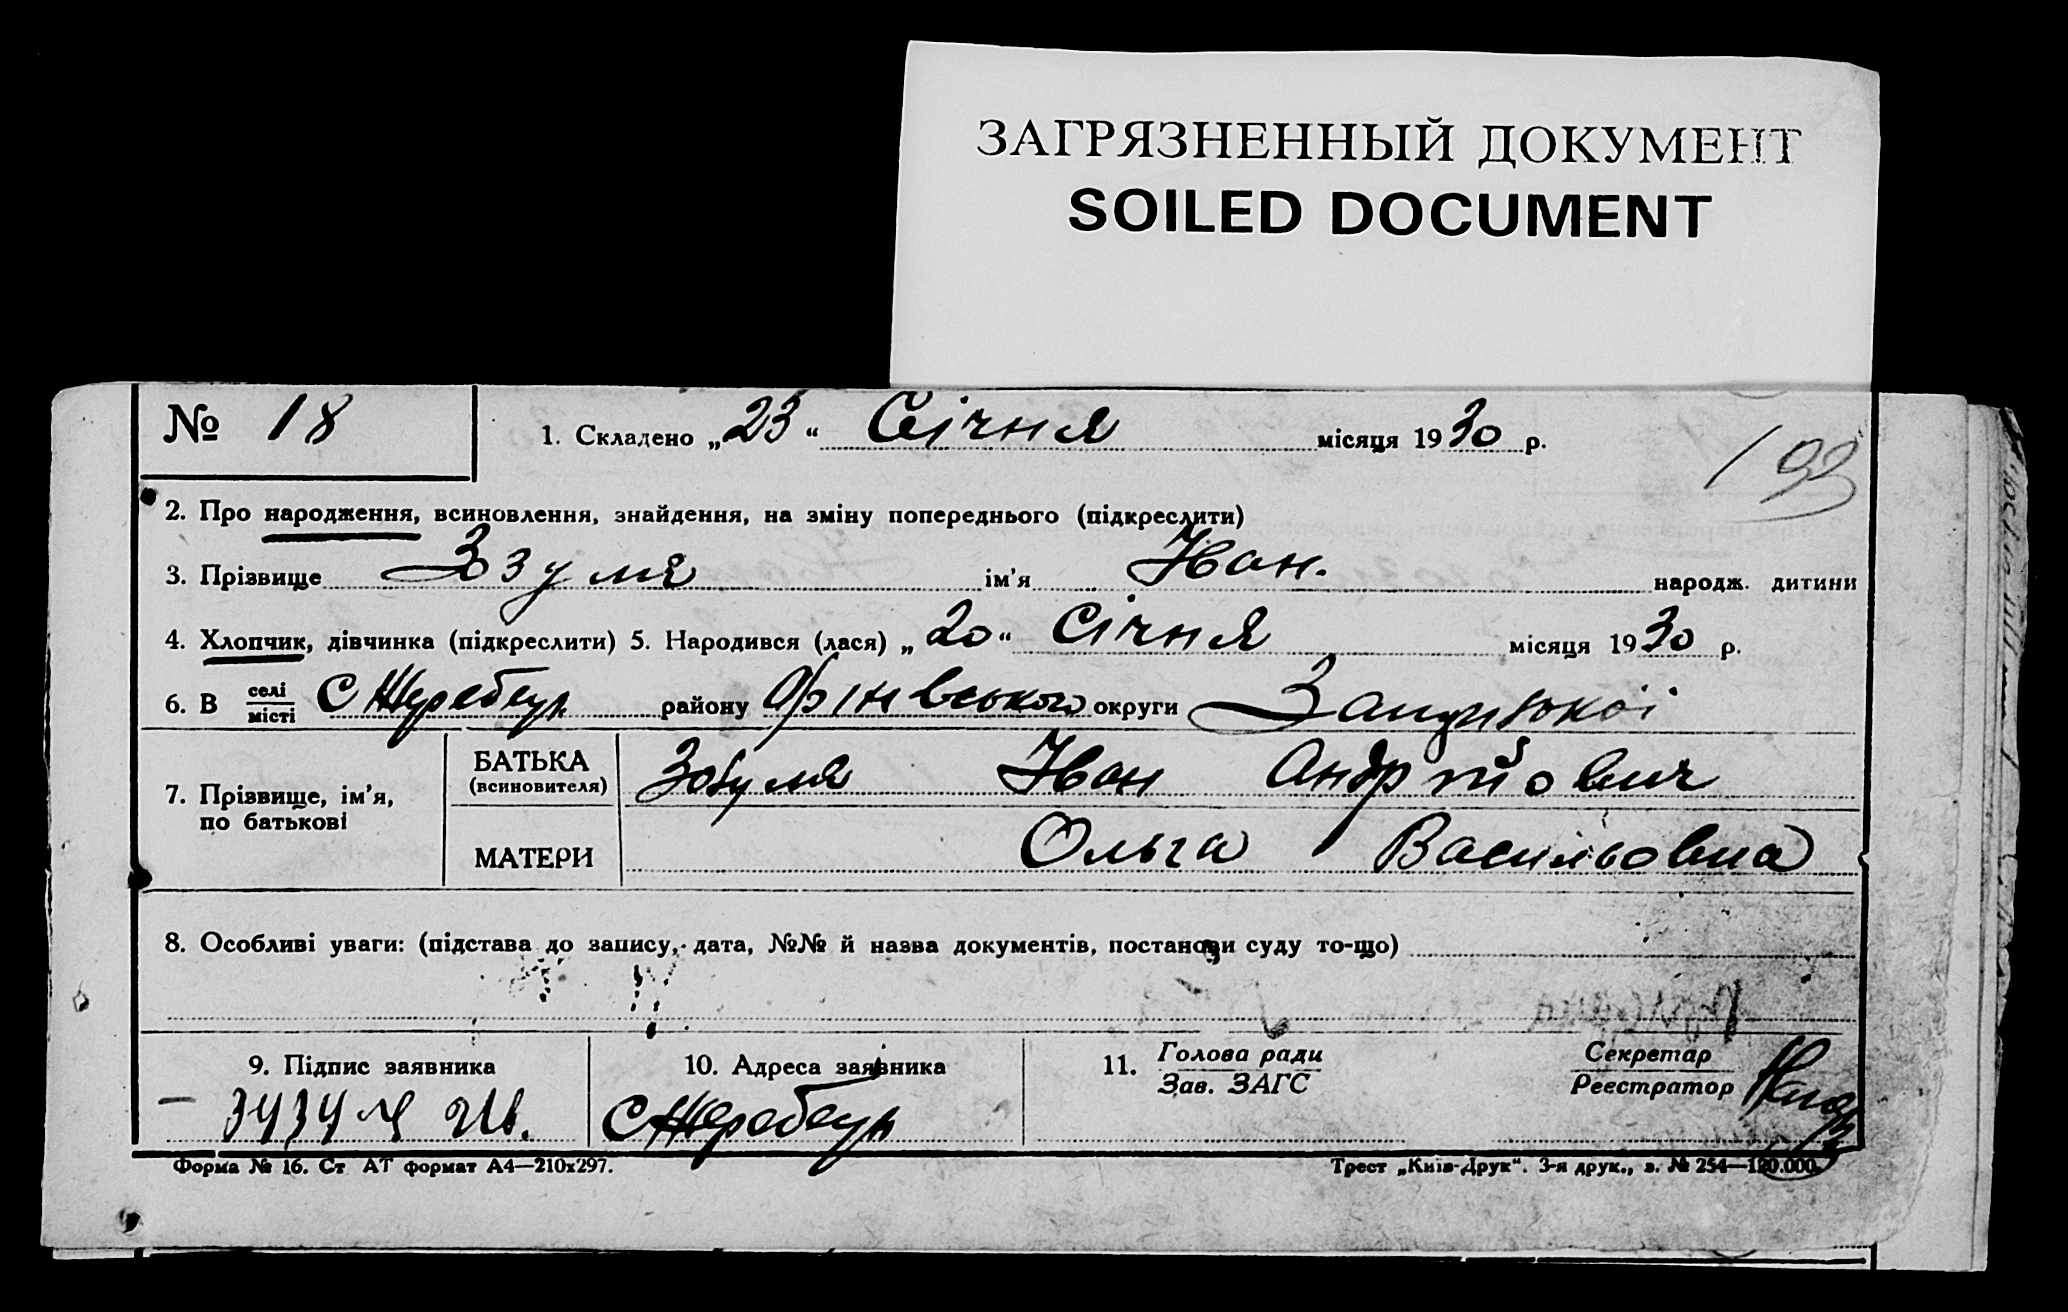 ЗАГРЯЗНЕННЫЙ ДОКУМЕНТ
SOILED DOCUMENT
№ 18
1. Складено „23“ Січня місяця 1930 р.
193
2. Про народження, всиновлення, знайдення, на зміну попереднього (підкреслити)
3. Прізвище Зозуля ім'я Іван. народж. дитини
4. Хлопчик, дівчинка (підкреслити) 5. Народився (лася) „20“ Січня місяця 1930 р.
6. В селі місті С Жеребець району округи
7. Прізвище, ім'я, по батькові
БАТЬКА (всиновителя) Зозуля Іван Андрійович
МАТЕРИ Ольга Васильовна
8. Особливі уваги: (підстава до запису, дата, №№ й назва документів, постанови суду то-що)
9. Підпис заявника
10. Адреса заявника
С Жеребець
11. Голова ради Зав. ЗАГС
Секретар Реєстратор
Форма № 16. Ст АТ формат А4—210х297.
Трест „Київ-Друк“. 3-я друк., з. № 254—120.000.